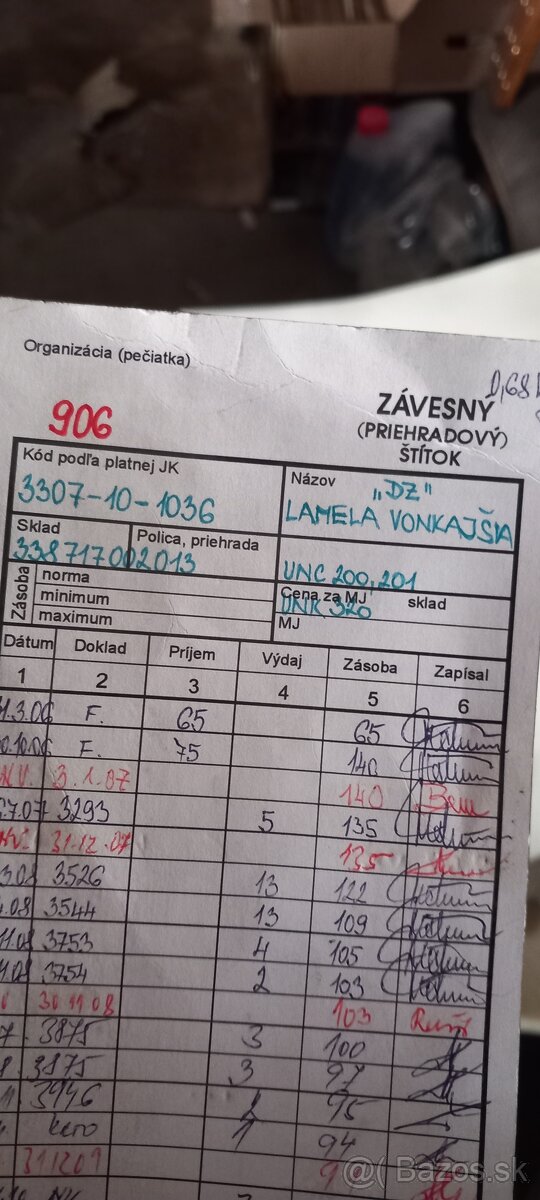 Organizácia (pečiatka)
0,68
906
ZÁVESNÝ
(PRIEHRADOVÝ)
ŠTÍTOK
Kód podľa platnej JK
3307-10-1036
Názov „DZ"
LAMELA VONKAJŠIA
Sklad
338717002013
Polica, priehrada
UNC 200, 201
Zásoba
norma
minimum
maximum
Cena za MJ
sklad
DNK 320
MJ
Dátum Doklad Príjem Výdaj Zásoba Zapísal
1 2 3 4 5 6
1.3.06 F. 65 65
0.10.06 F. 75 140
3.1.07 140
7.07 3293 5 135
31.12.07 135
3.08 3526 13 122
.08 3544 13 109
11.08 3753 4 105
.08 3754 2 103
30 11 08 103
3875 3 100
3875 3 97
3946 95
1 94
311209
@( Bazos.sk